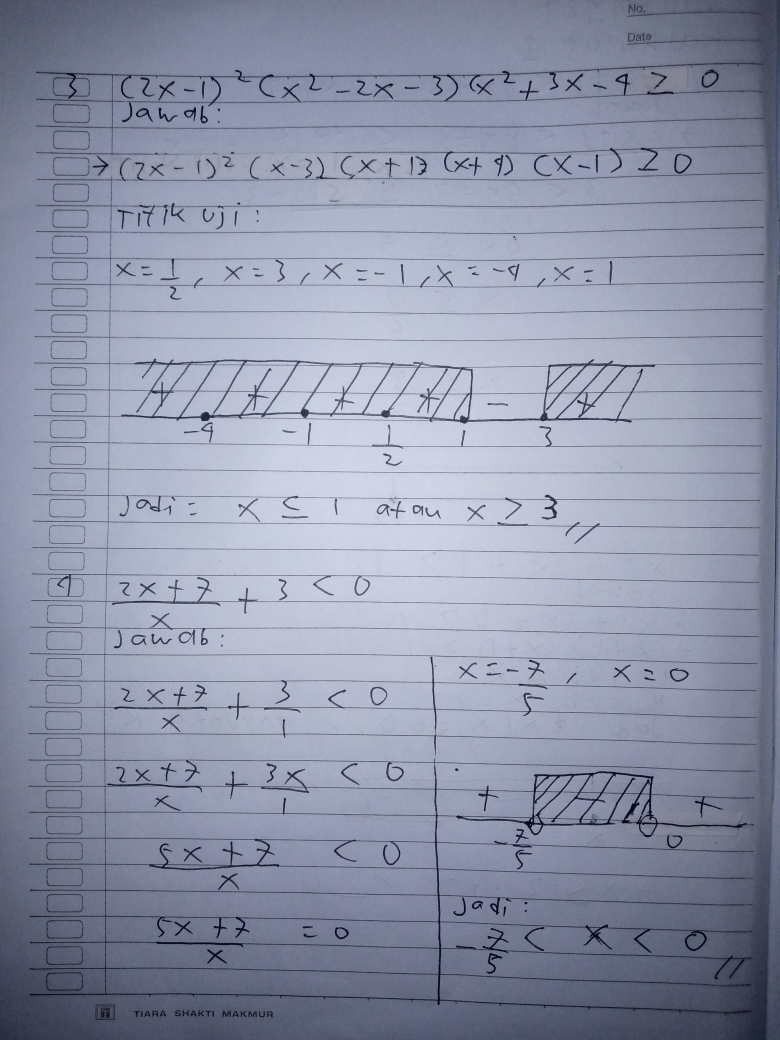 No.
Date
3 (2x-1)² (x² - 2x - 3) (x² + 3x - 4 ≥ 0
Jawab:
→ (2x - 1)² (x-3) (x + 1) (x + 4) (x - 1) ≥ 0
Titik uji :
x = 1/2 , x = 3 , x = -1 , x = -4 , x = 1
+ + + + - +
-4 -1 1/2 1 3
Jadi = x ≤ 1 atau x ≥ 3 //
4 (2x + 7)/x + 3 < 0
Jawab :
(2x + 7)/x + 3/1 < 0
(2x + 7)/x + 3x/1 < 0
(5x + 7)/x < 0
(5x + 7)/x = 0
x = -7/5 , x = 0
+ - +
-7/5 0
Jadi :
-7/5 < x < 0 //
TIARA SHAKTI MAKMUR